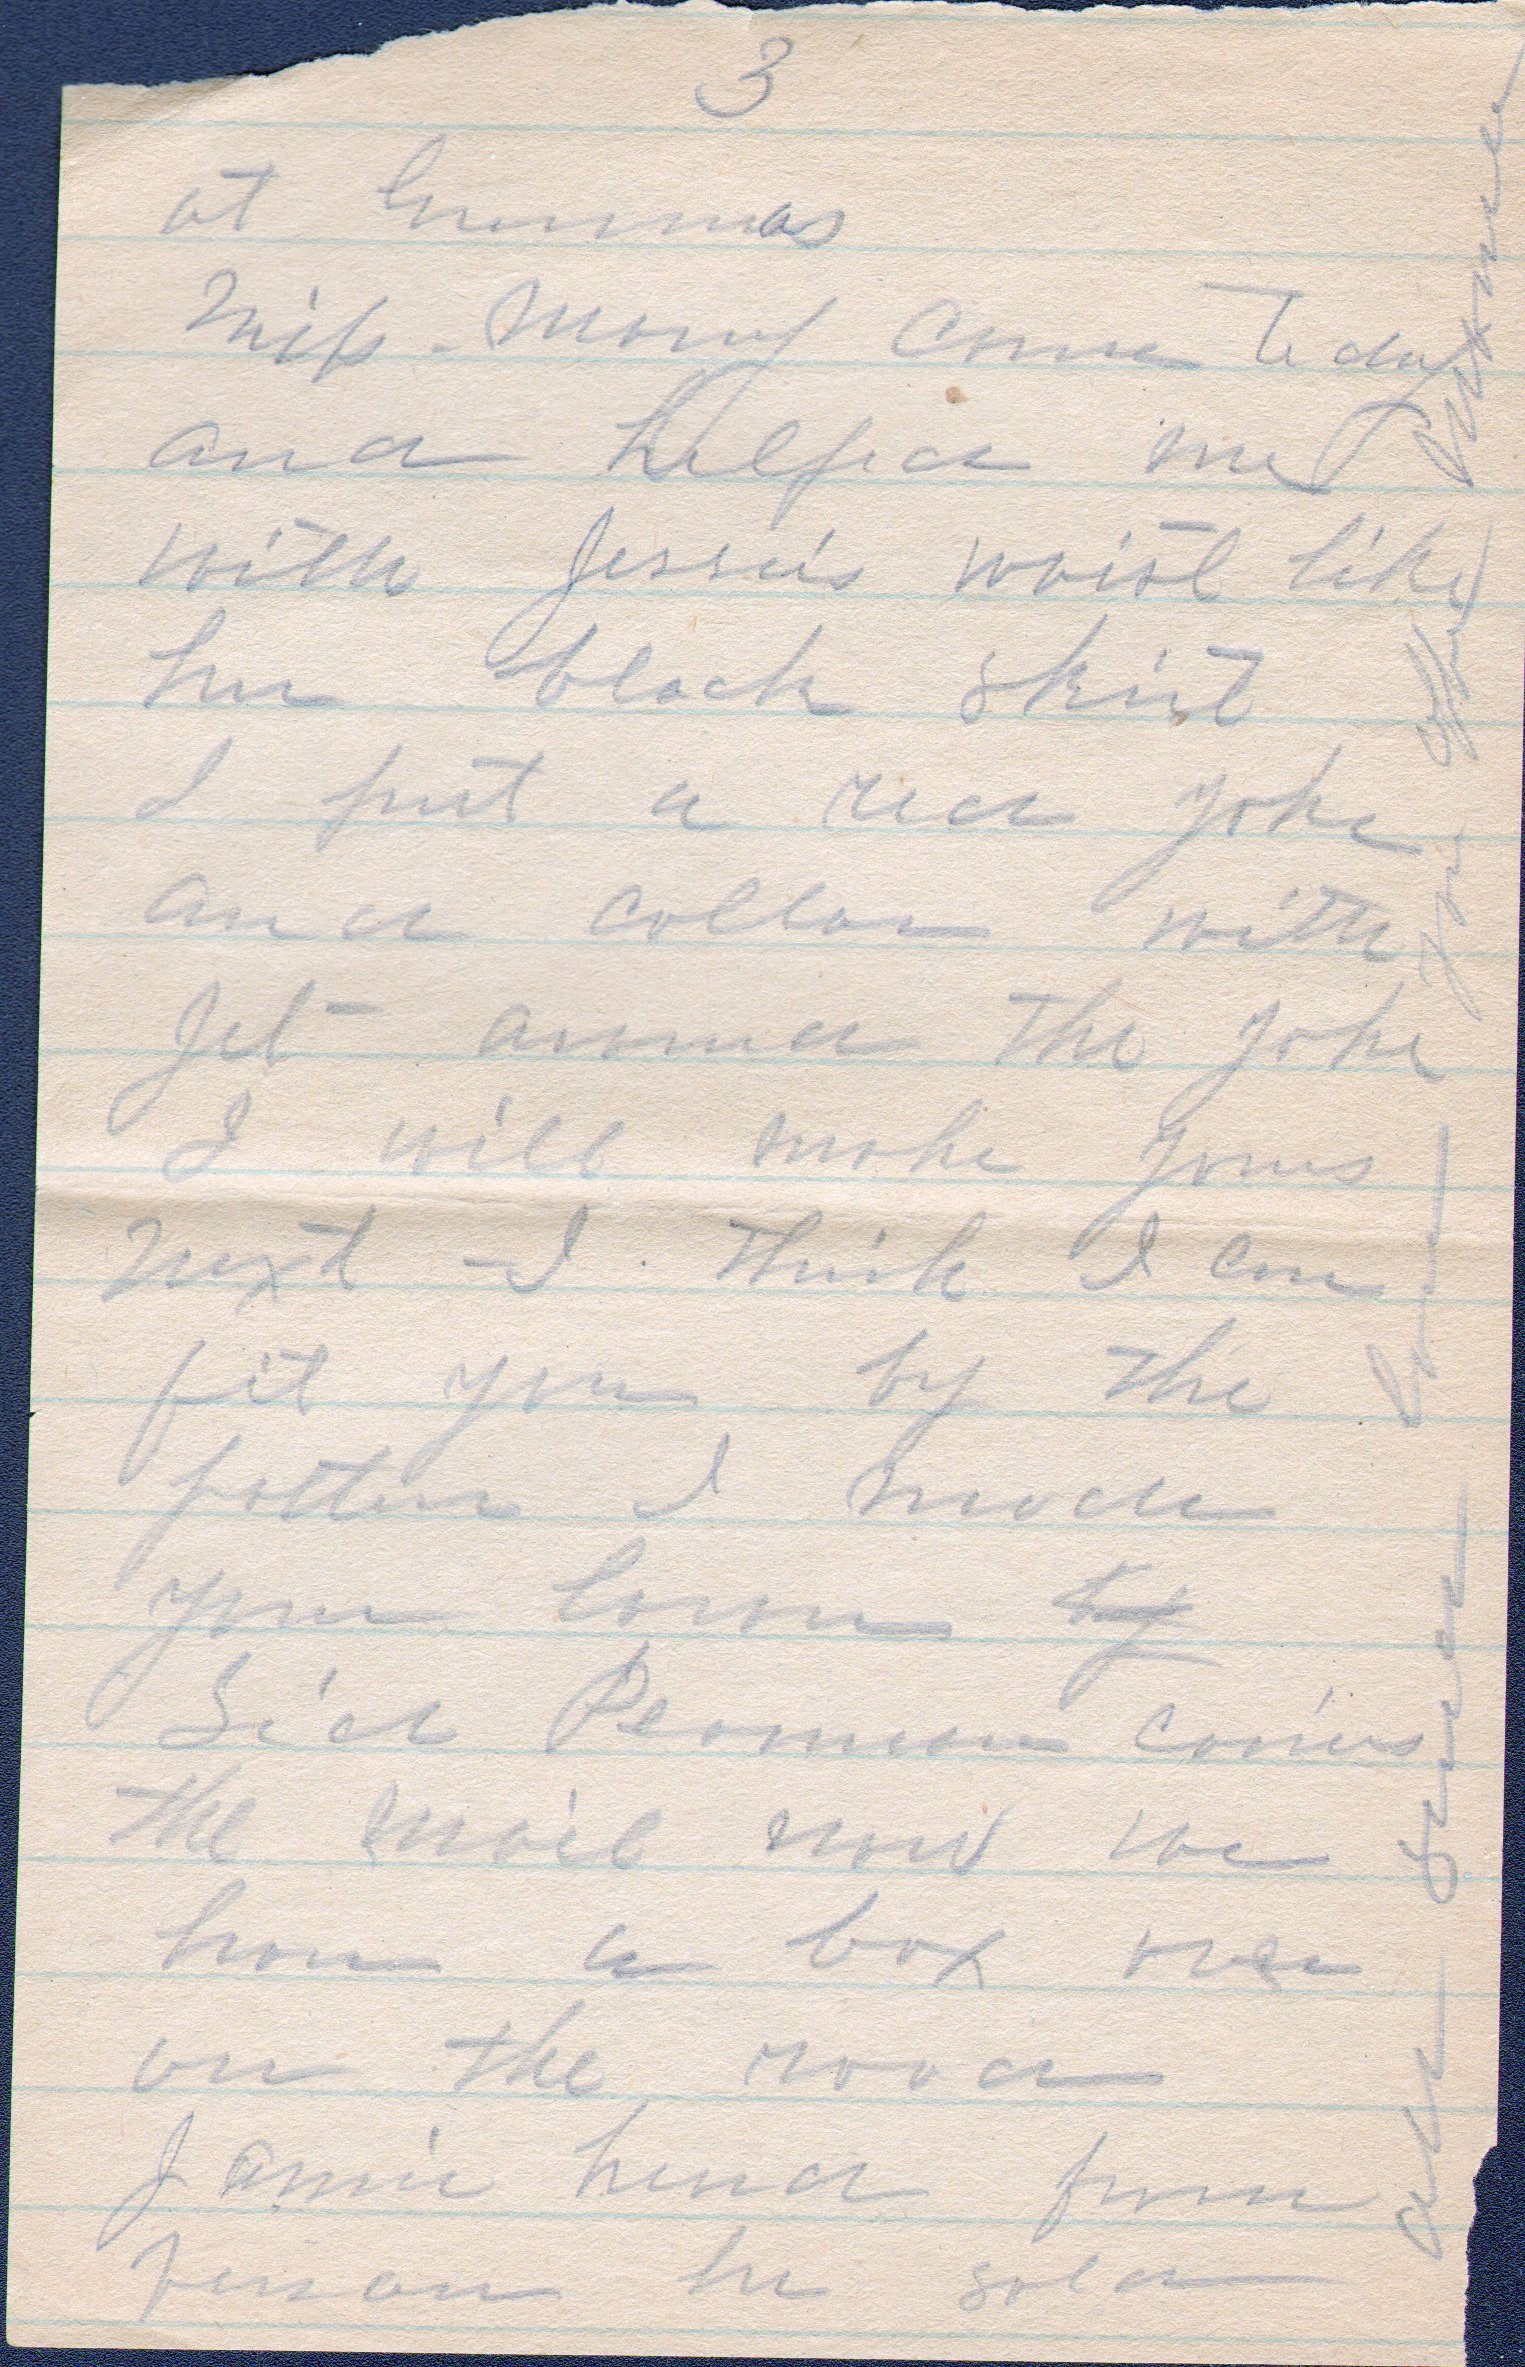 3
at Grandmas
Miss Mary Come Today
and helped me
with Jessies waist like
her black skirt
I put a red yoke
and collar with
Jet around the yoke
I will make yours
next I think I can
fit you by the
pattern I made
your brown by
Sid Pearman carries
the mail now we
have a box over
on the road
Jamie heard from
he sold